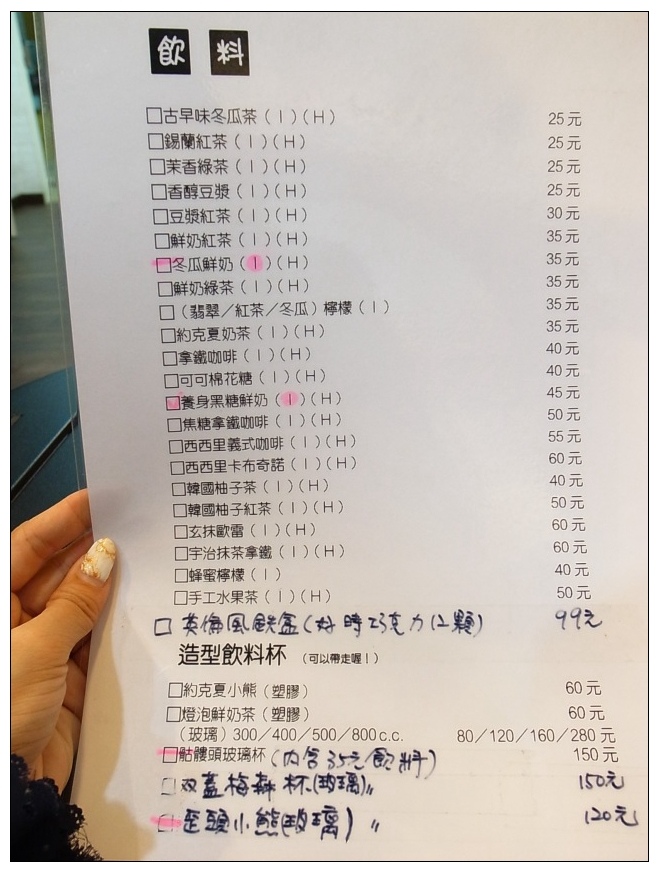 飲料
□古早味冬瓜茶（I）（H） 25元
□錫蘭紅茶（I）（H） 25元
□茉香綠茶（I）（H） 25元
□香醇豆漿（I）（H） 25元
□豆漿紅茶（I）（H） 30元
□鮮奶紅茶（I）（H） 35元
□冬瓜鮮奶（I）（H） 35元
□鮮奶綠茶（I）（H） 35元
□（翡翠／紅茶／冬瓜）檸檬（I） 35元
□約克夏奶茶（I）（H） 35元
□拿鐵咖啡（I）（H） 40元
□可可棉花糖（I）（H） 40元
□養身黑糖鮮奶（I）（H） 45元
□焦糖拿鐵咖啡（I）（H） 50元
□西西里義式咖啡（I）（H） 55元
□西西里卡布奇諾（I）（H） 60元
□韓國柚子茶（I）（H） 40元
□韓國柚子紅茶（I）（H） 50元
□玄抹歐雷（I）（H） 60元
□宇治抹茶拿鐵（I）（H） 60元
□蜂蜜檸檬（I） 40元
□手工水果茶（I）（H） 50元
□英倫風鐵盒(好時巧克力12顆) 99元
造型飲料杯（可以帶走喔！）
□約克夏小熊（塑膠） 60元
□燈泡鮮奶茶（塑膠） 60元
（玻璃）300／400／500／800c.c. 80／120／160／280元
□骷髏頭玻璃杯(內含35元飲料) 150元
□双蓋梅森杯(玻璃)〃 150元
□歪頭小熊(玻璃)〃 120元